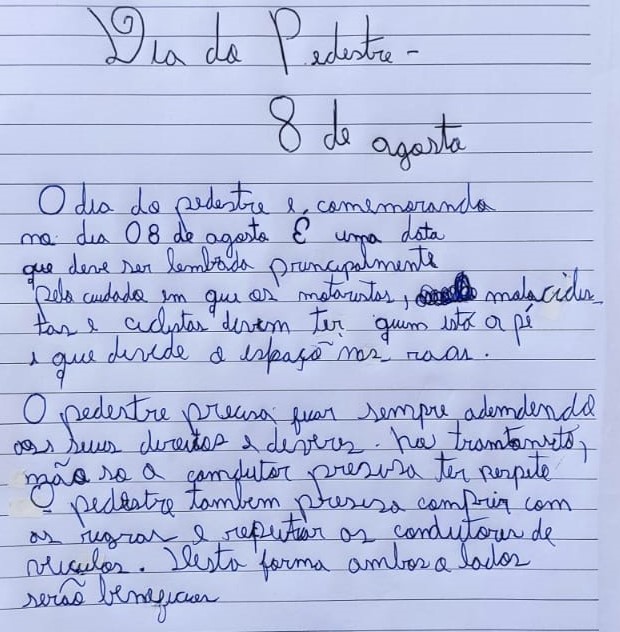 Dia do Pedestre -
8 de agosto
O dia do pedestre é comemorando
no dia 08 de agosto É uma data
que deve ser lembada principalmente
Pelo cuidado em que os motoristas, motocicles_
tas e ciclistas devem ter quem está a pé
e que divide o espaço nas ruas.
O pedestre precisa ficar sempre ademdendo
aos seus direitos e deveres. no tramtanseto,
mão so o comdutor presisa ter respeite
O pedestre tambem presisa comprir com
as regras e repeitiar os condutores de
veiculos. Desta forma ambos o lados
serão beneficiar